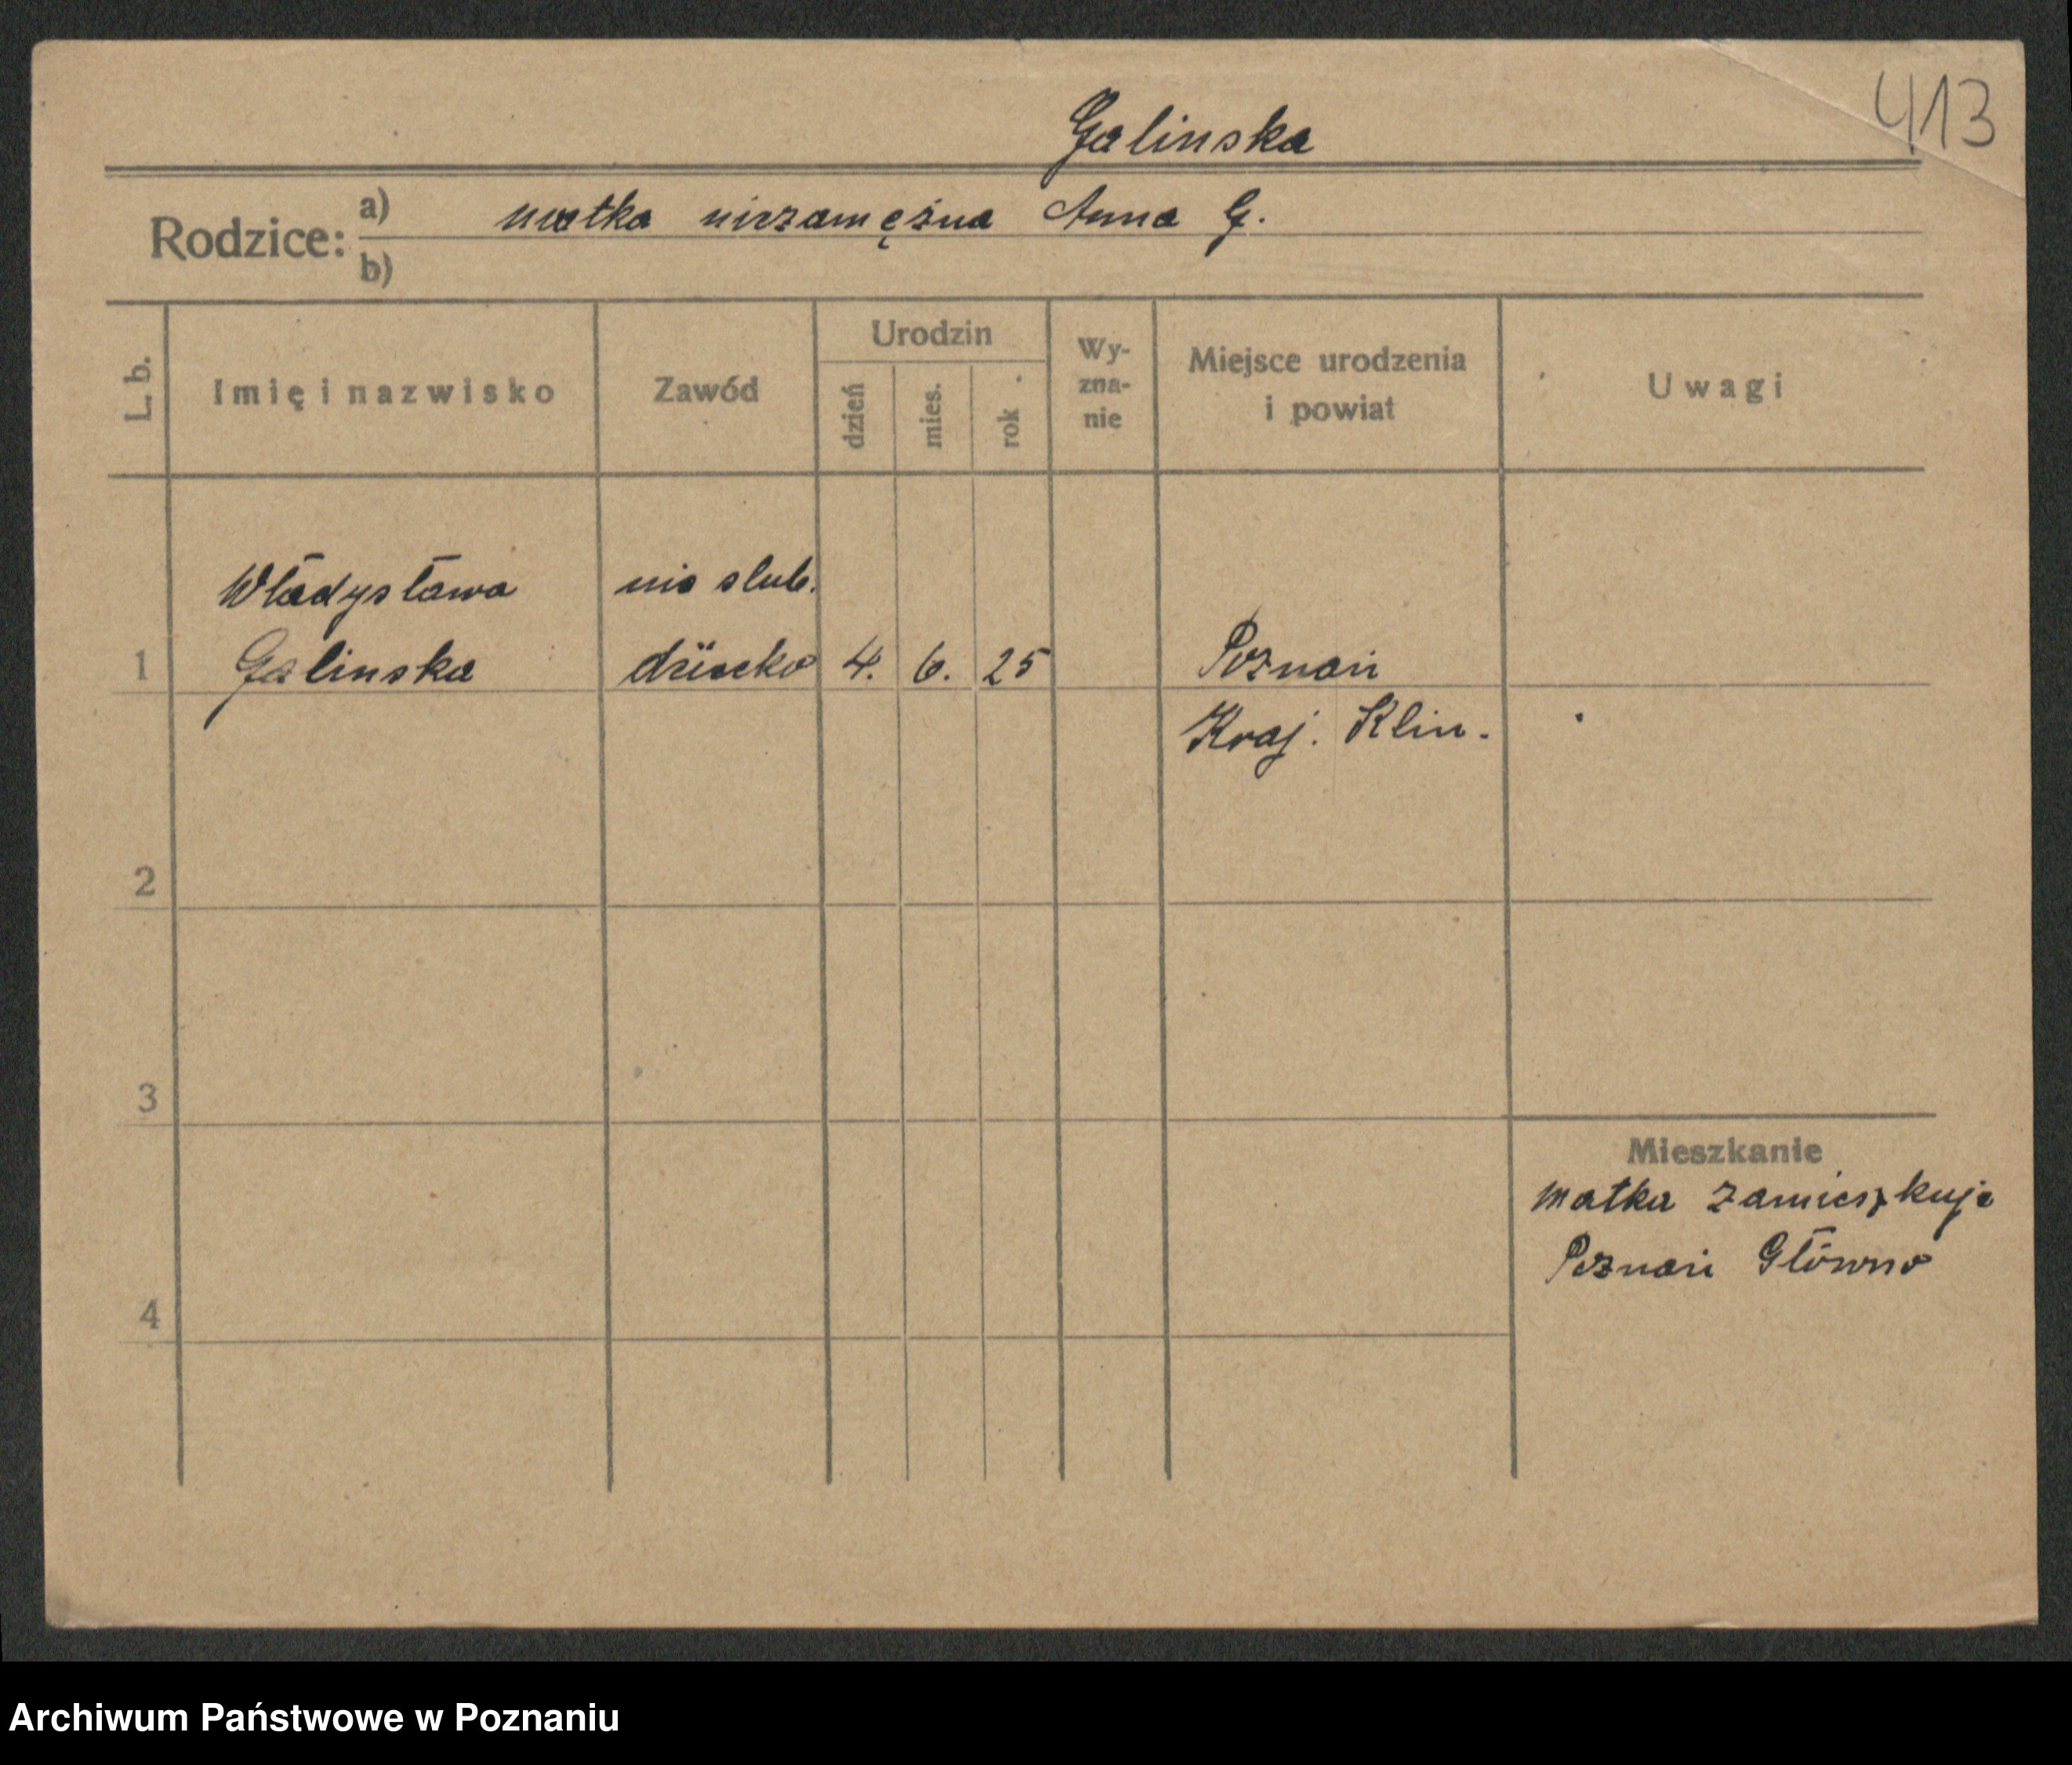 413
Galinska
Rodzice:
a) matka niezamężna Anna G.
b)
L. b.
Imię i nazwisko
Zawód
Urodzin
dzień
mies.
rok
Wy-
zna-
nie
Miejsce urodzenia
i powiat
Uwagi
Władysława
nie slub.
1
Galinska
dziecko
4.
6.
25
Poznań
Kraj. Klin.
2
3
4
Mieszkanie
Matka zamieszkuje
Poznań Główno
Archiwum Państwowe w Poznaniu